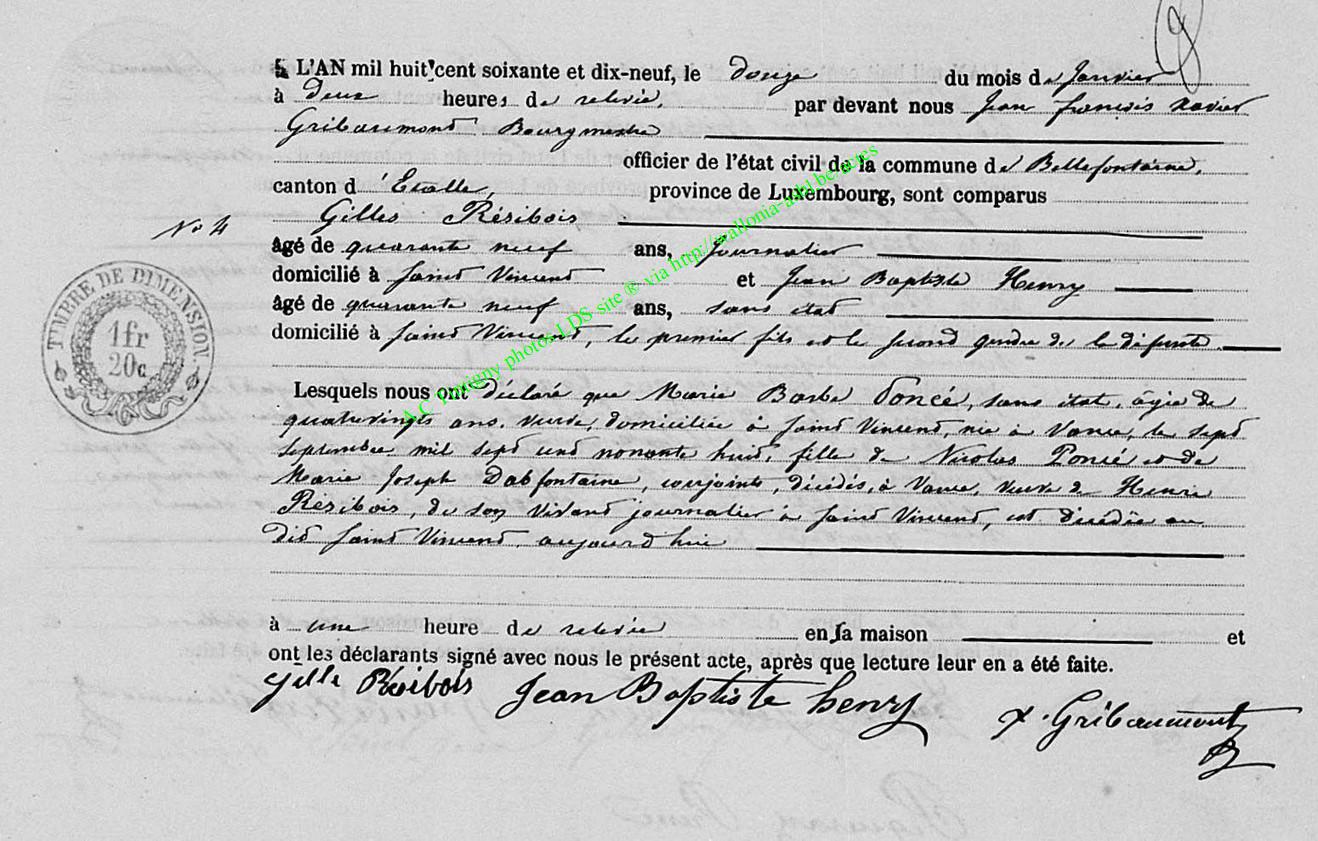 L'AN mil huit cent soixante et dix-neuf, le douze du mois de Janvier
à deux heures de relevée, par devant nous Jean François Xavier
Gribaumont Bourgmestre
officier de l'état civil de la commune de Bellefontaine,
canton d'Etalle, province de Luxembourg, sont comparus
Gilles Résibois
No 4
âgé de quarante neuf ans, Journalier
domicilié à Saint Vincent et Jean Baptiste Henry
âgé de quarante neuf ans, sans état
domicilié à Saint Vincent, le premier fils et le second gendre de la défunte
Lesquels nous ont déclaré que Marie Barbe Poncé, sans état, âgée de
quatrevingts ans, veuve, domiciliée à Saint Vincent, née à Vance, le sept
septembre mil sept cent nonante huit, fille de Nicolas Poncé et de
Marie Joseph Dabfontaine, conjoints, décédés, à Vance, veuve de Henri
Résibois, de son vivant journalier à Saint Vincent, est décédée au
dit Saint Vincent, aujourd'hui
à une heure de relevée en la maison et
ont les déclarants signé avec nous le présent acte, après que lecture leur en a été faite.
Gille Résibois Jean Baptiste henry X. Gribaumont
TIMBRE DE DIMENSION.
1 fr
20 c.
A.C. Patigny photos LDS site ® via http://wallonia-asbl.be/actes